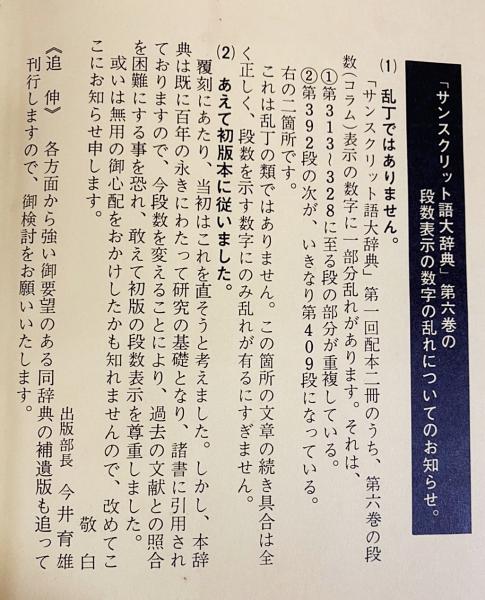 「サンスクリット語大辞典」第六巻の
段数表示の数字の乱れについてのお知らせ。
(1) 乱丁ではありません。
「サンスクリット語大辞典」第一回配本二冊のうち、第六巻の段
数(コラム)表示の数字に一部分乱れがあります。それは、
①第313〜328に至る段の部分が重複している。
②第392段の次が、いきなり第409段になっている。
右の二箇所です。
これは乱丁の類ではありません。この箇所の文章の続き具合は全
く正しく、段数を示す数字にのみ乱れが有るにすぎません。
(2) あえて初版本に従いました。
覆刻にあたり、当初はこれを直そうと考えました。しかし、本辞
典は既に百年の永きにわたって研究の基礎となり、諸書に引用され
ておりますので、今段数を変えることにより、過去の文献との照合
を困難にする事を恐れ、敢えて初版の段数表示を尊重しました。
或いは無用の御心配をおかけしたかも知れませんので、改めてこ
こにお知らせ申します。
敬白
出版部長 今井育雄
《追伸》 各方面から強い御要望のある同辞典の補遺版も追って
刊行しますので、御検討をお願いいたします。